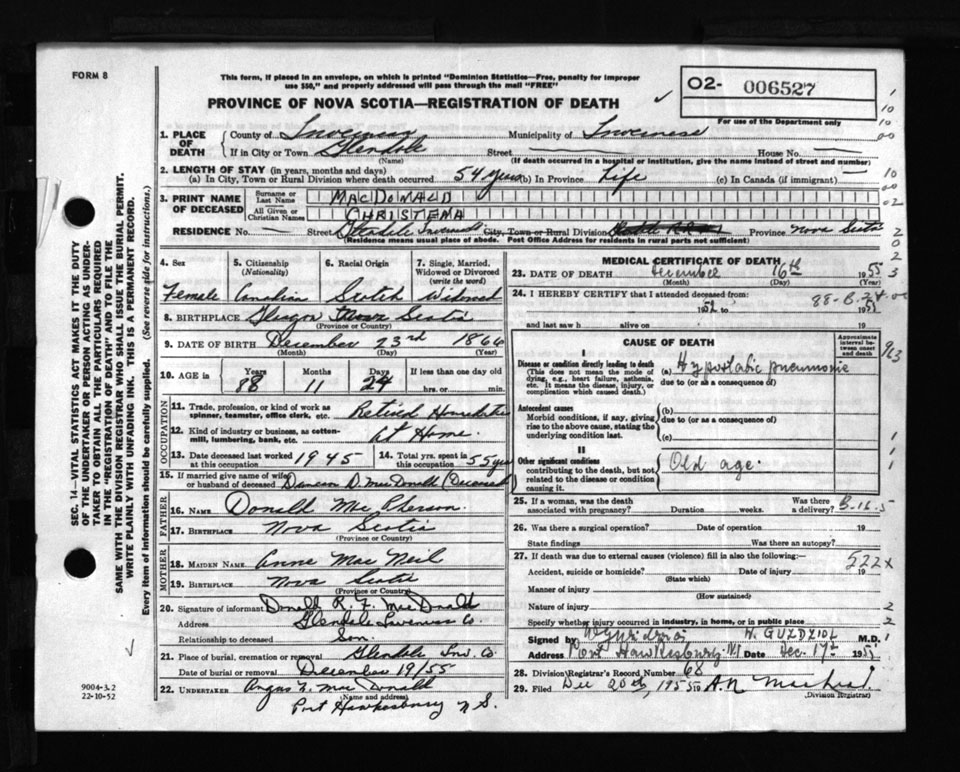 FORM 8
This form, if placed in an envelope, on which is printed "Dominion Statistics—Free, penalty for improper
use $50," and properly addressed will pass through the mail "FREE"
PROVINCE OF NOVA SCOTIA—REGISTRATION OF DEATH
O2- 006527
For use of the Department only
1. PLACE OF DEATH
County of Inverness Municipality of Inverness
If in City or Town Glendale Street House No.
(Name) (If death occurred in a hospital or institution, give the name instead of street and number)
2. LENGTH OF STAY (in years, months and days)
(a) In City, Town or Rural Division where death occurred 54 years (b) In Province Life (c) In Canada (if immigrant) —
3. PRINT NAME OF DECEASED
Surname or Last Name MACDONALD
All Given or Christian Names CHRISTENA
RESIDENCE No. — Street Glendale Inverness City, Town or Rural Division Province Nova Scotia
(Residence means usual place of abode. Post Office Address for residents in rural parts not sufficient)
4. Sex Female
5. Citizenship (Nationality) Canadian
6. Racial Origin Scotch
7. Single, Married, Widowed or Divorced (write the word) Widowed
8. BIRTHPLACE Nova Scotia
(Province or Country)
9. DATE OF BIRTH December 23rd 1866
(Month) (Day) (Year)
10. AGE in Years 88 Months 11 Days 24 If less than one day old hrs. or min.
OCCUPATION
11. Trade, profession, or kind of work as spinner, teamster, office clerk, etc. Retired
12. Kind of industry or business, as cotton-mill, lumbering, bank, etc. At Home.
13. Date deceased last worked at this occupation 1945
14. Total yrs. spent in this occupation 55 years
15. If married give name of wife or husband of deceased Duncan D. MacDonald (Deceased)
FATHER
16. NAME Donald Mac Pherson.
17. BIRTHPLACE Nova Scotia
(Province or Country)
MOTHER
18. MAIDEN NAME Anne Mac Neil
19. BIRTHPLACE Nova Scotia
(Province or Country)
20. Signature of informant Donald R. F. MacDonald
Address Glendale Inverness Co.
Relationship to deceased Son.
21. Place of burial, cremation or removal Glendale Inv. Co.
Date of burial or removal December 19/55
22. UNDERTAKER Angus F. MacDonald
(Name and address)
Port Hawkesbury N S.
MEDICAL CERTIFICATE OF DEATH
23. DATE OF DEATH December 16th 1955
(Month) (Day) (Year)
24. I HEREBY CERTIFY that I attended deceased from:
1952 to 1955
and last saw h alive on 19
88-B-24-00
CAUSE OF DEATH
Approximate interval between onset and death
I
Disease or condition directly leading to death
(This does not mean the mode of dying, e.g., heart failure, asthenia, etc. It means the disease, injury, or complication which caused death.)
(a) Hypostatic pneumonia
due to (or as a consequence of)
Antecedent causes
Morbid conditions, if any, giving rise to the above cause, stating the underlying condition last.
(b)
due to (or as a consequence of)
(c)
II
Other significant conditions
contributing to the death, but not related to the disease or condition causing it.
Old age.
25. If a woman, was the death associated with pregnancy? Duration weeks. Was there a delivery? B-16-5
26. Was there a surgical operation? Date of operation 19
State findings Was there an autopsy?
27. If death was due to external causes (violence) fill in also the following:—
Accident, suicide or homicide? Date of injury 19
(State which)
522x
Manner of injury
(How sustained)
Nature of injury
Specify whether injury occurred in industry, in home, or in public place
Signed by W. GUZDZIOL M.D.
Address Port Hawkesbury N.S Date Dec. 17th 1955
28. Division Registrar's Record Number 68
29. Filed Dec 20th, 1955
(Division Registrar)
SEC. 14—VITAL STATISTICS ACT MAKES IT THE DUTY
OF THE UNDERTAKER OR PERSON ACTING AS UNDER-
TAKER TO OBTAIN ALL THE PARTICULARS REQUIRED
IN THE "REGISTRATION OF DEATH" AND TO FILE THE
SAME WITH THE DIVISION REGISTRAR WHO SHALL ISSUE THE BURIAL PERMIT.
WRITE PLAINLY WITH UNFADING INK. THIS IS A PERMANENT RECORD.
Every item of information should be carefully supplied. (See reverse side for instructions.)
9004-3.2
22-10-52